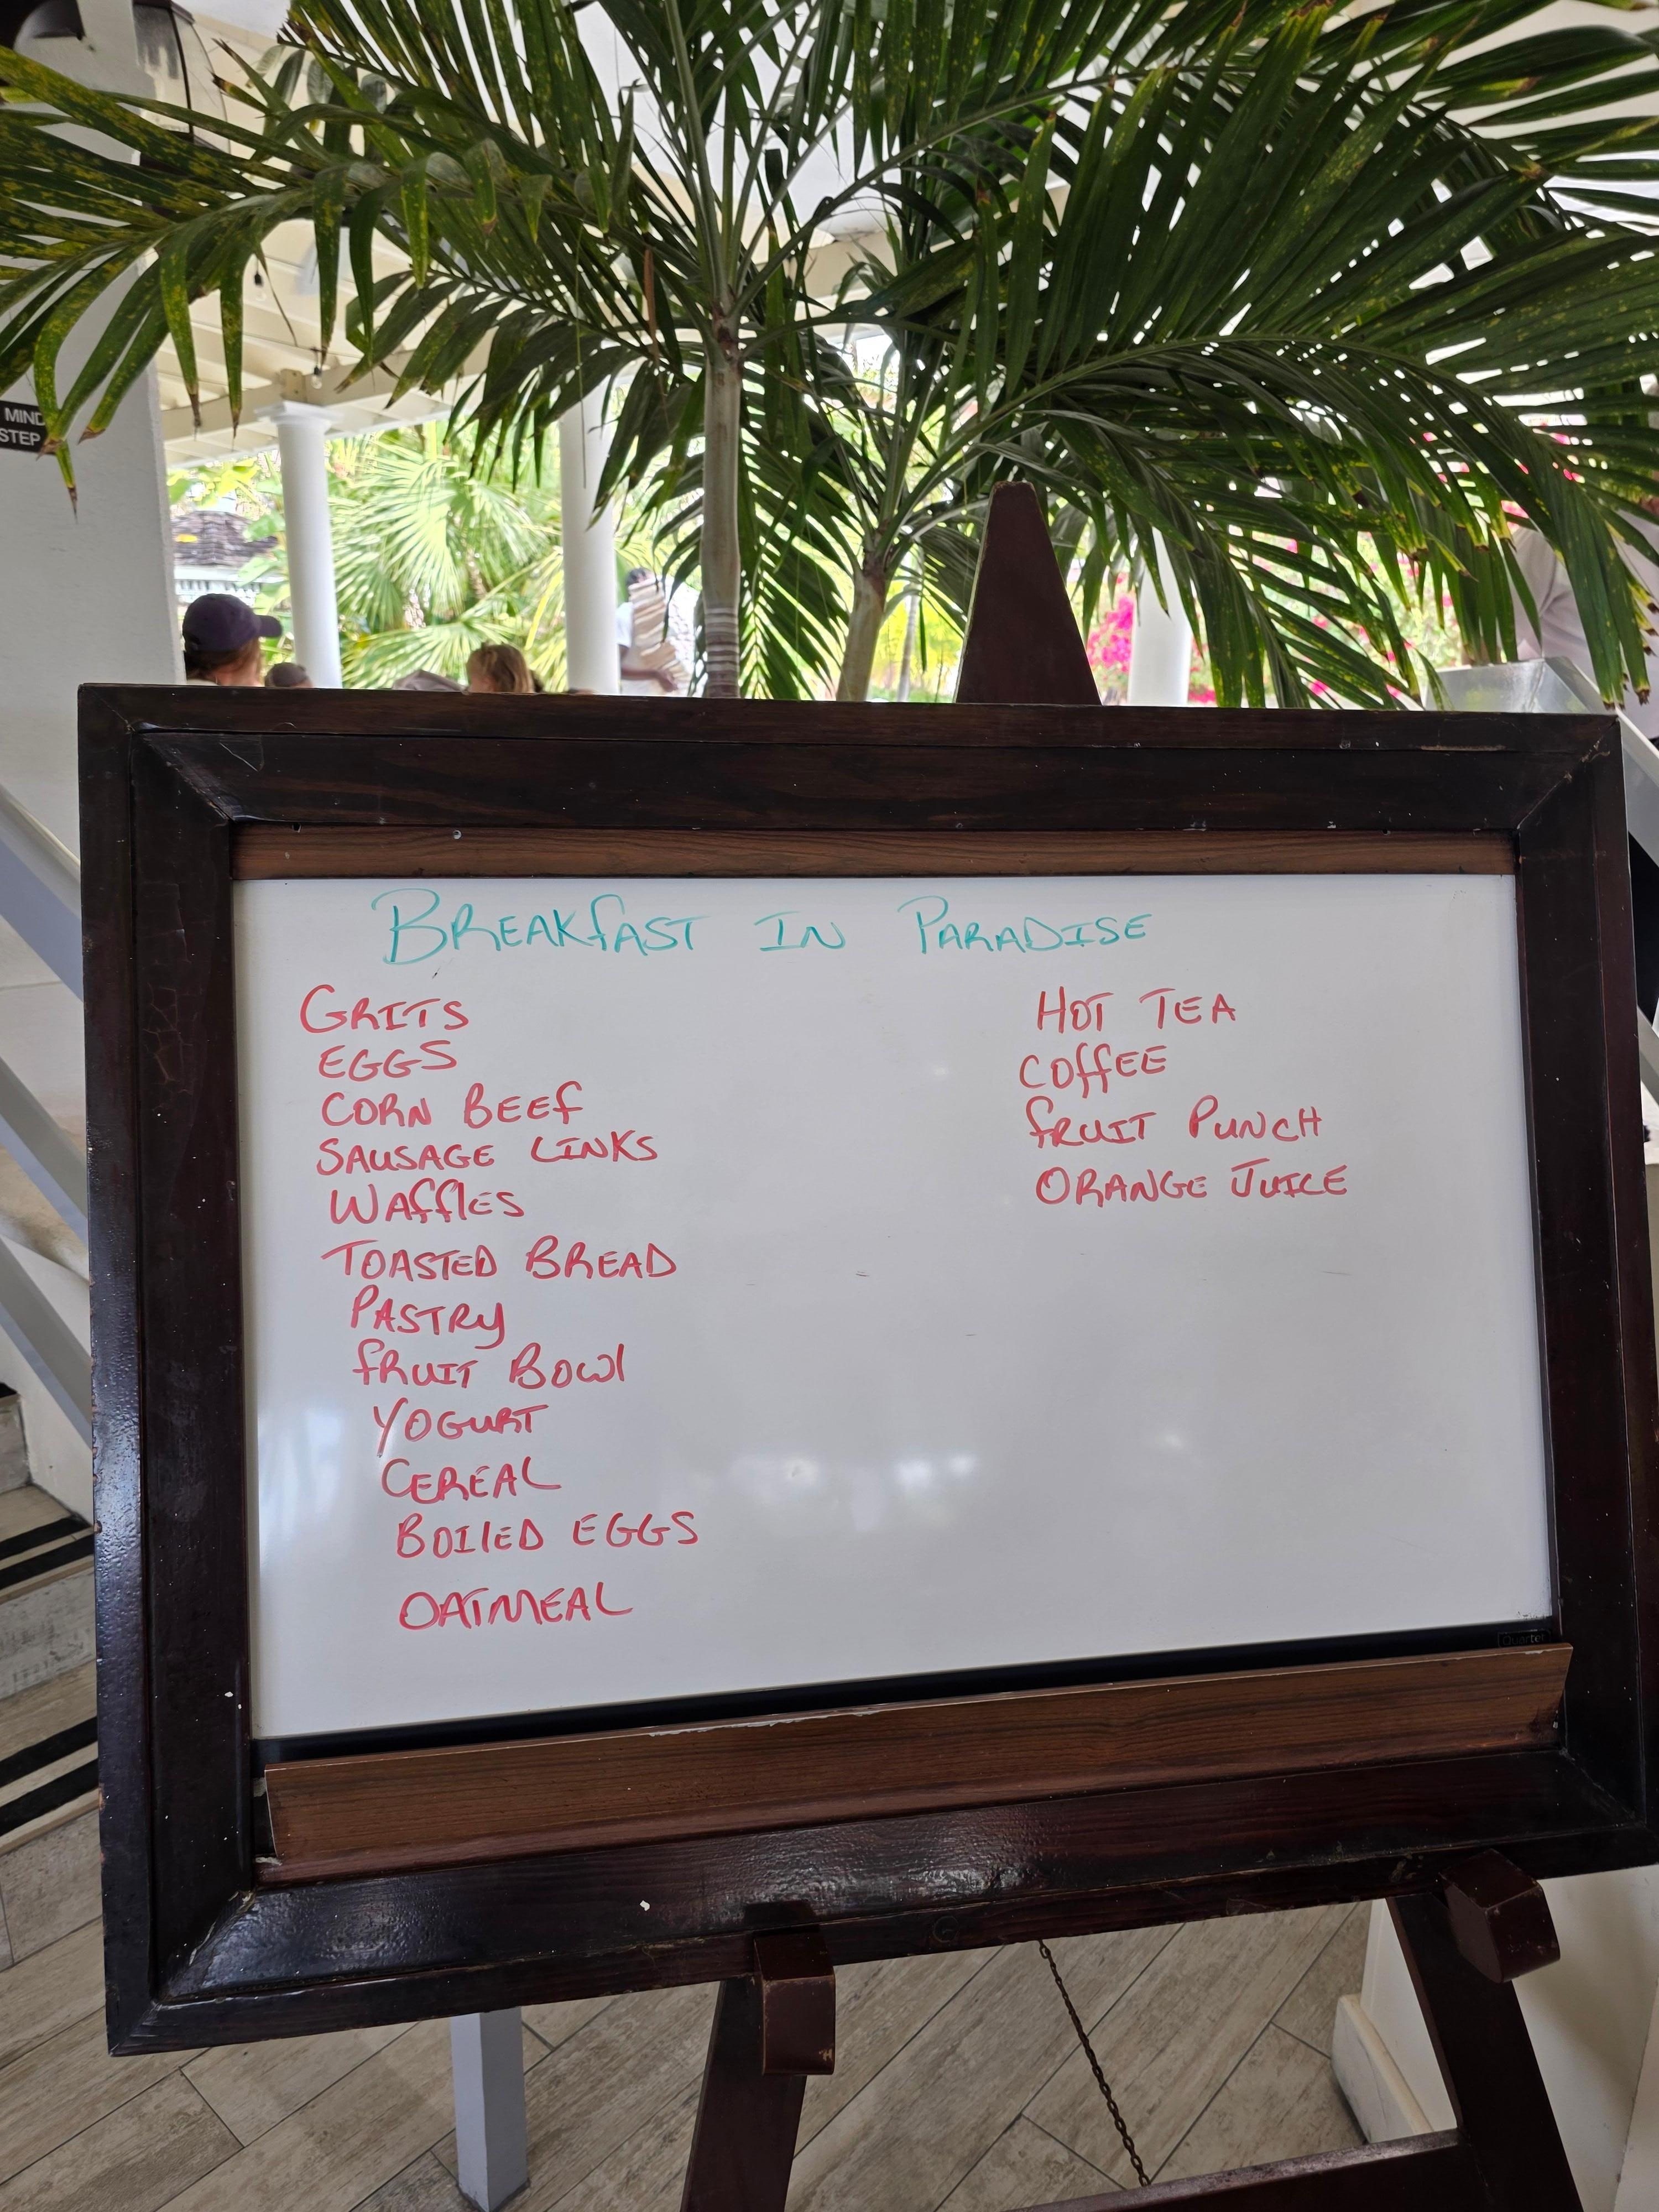 MIND
STEP
BREAKfAST IN PARADISE
GRITS
EGGS
CORN BEEf
SAUSAGE LINKS
WAfflES
TOASTED BREAD
PASTRy
fRUIT BOWl
YOGURT
CEREAL
BOIlED EGGS
OATMEAL
HOT TEA
COffEE
fRUIT PUNCH
ORANGE JUICE
Quartet